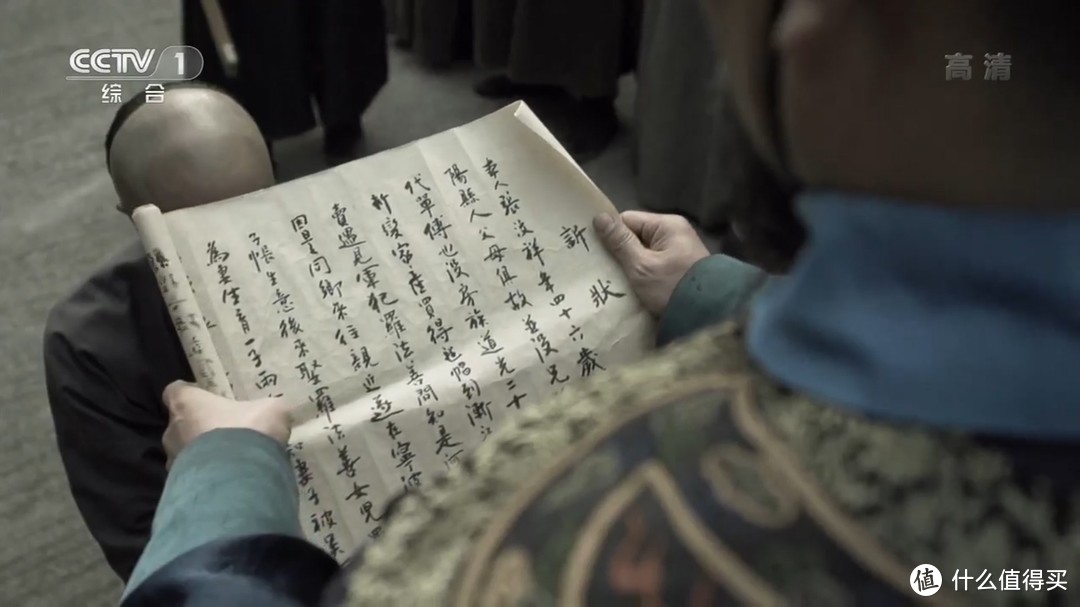 CCTV 1
综合
高清
訴狀
人張汶祥年四十六歲
陽縣人父母俱故並没兄
代單傳也没房族道光二十
折變家產買得毡帽到浙
賣遇見軍犯羅法善問知是河
因是同鄉來往親近遂在寧波
子 生意後來娶羅法善女兒
為妻生育一子兩
妻子被吳
值 什么值得买